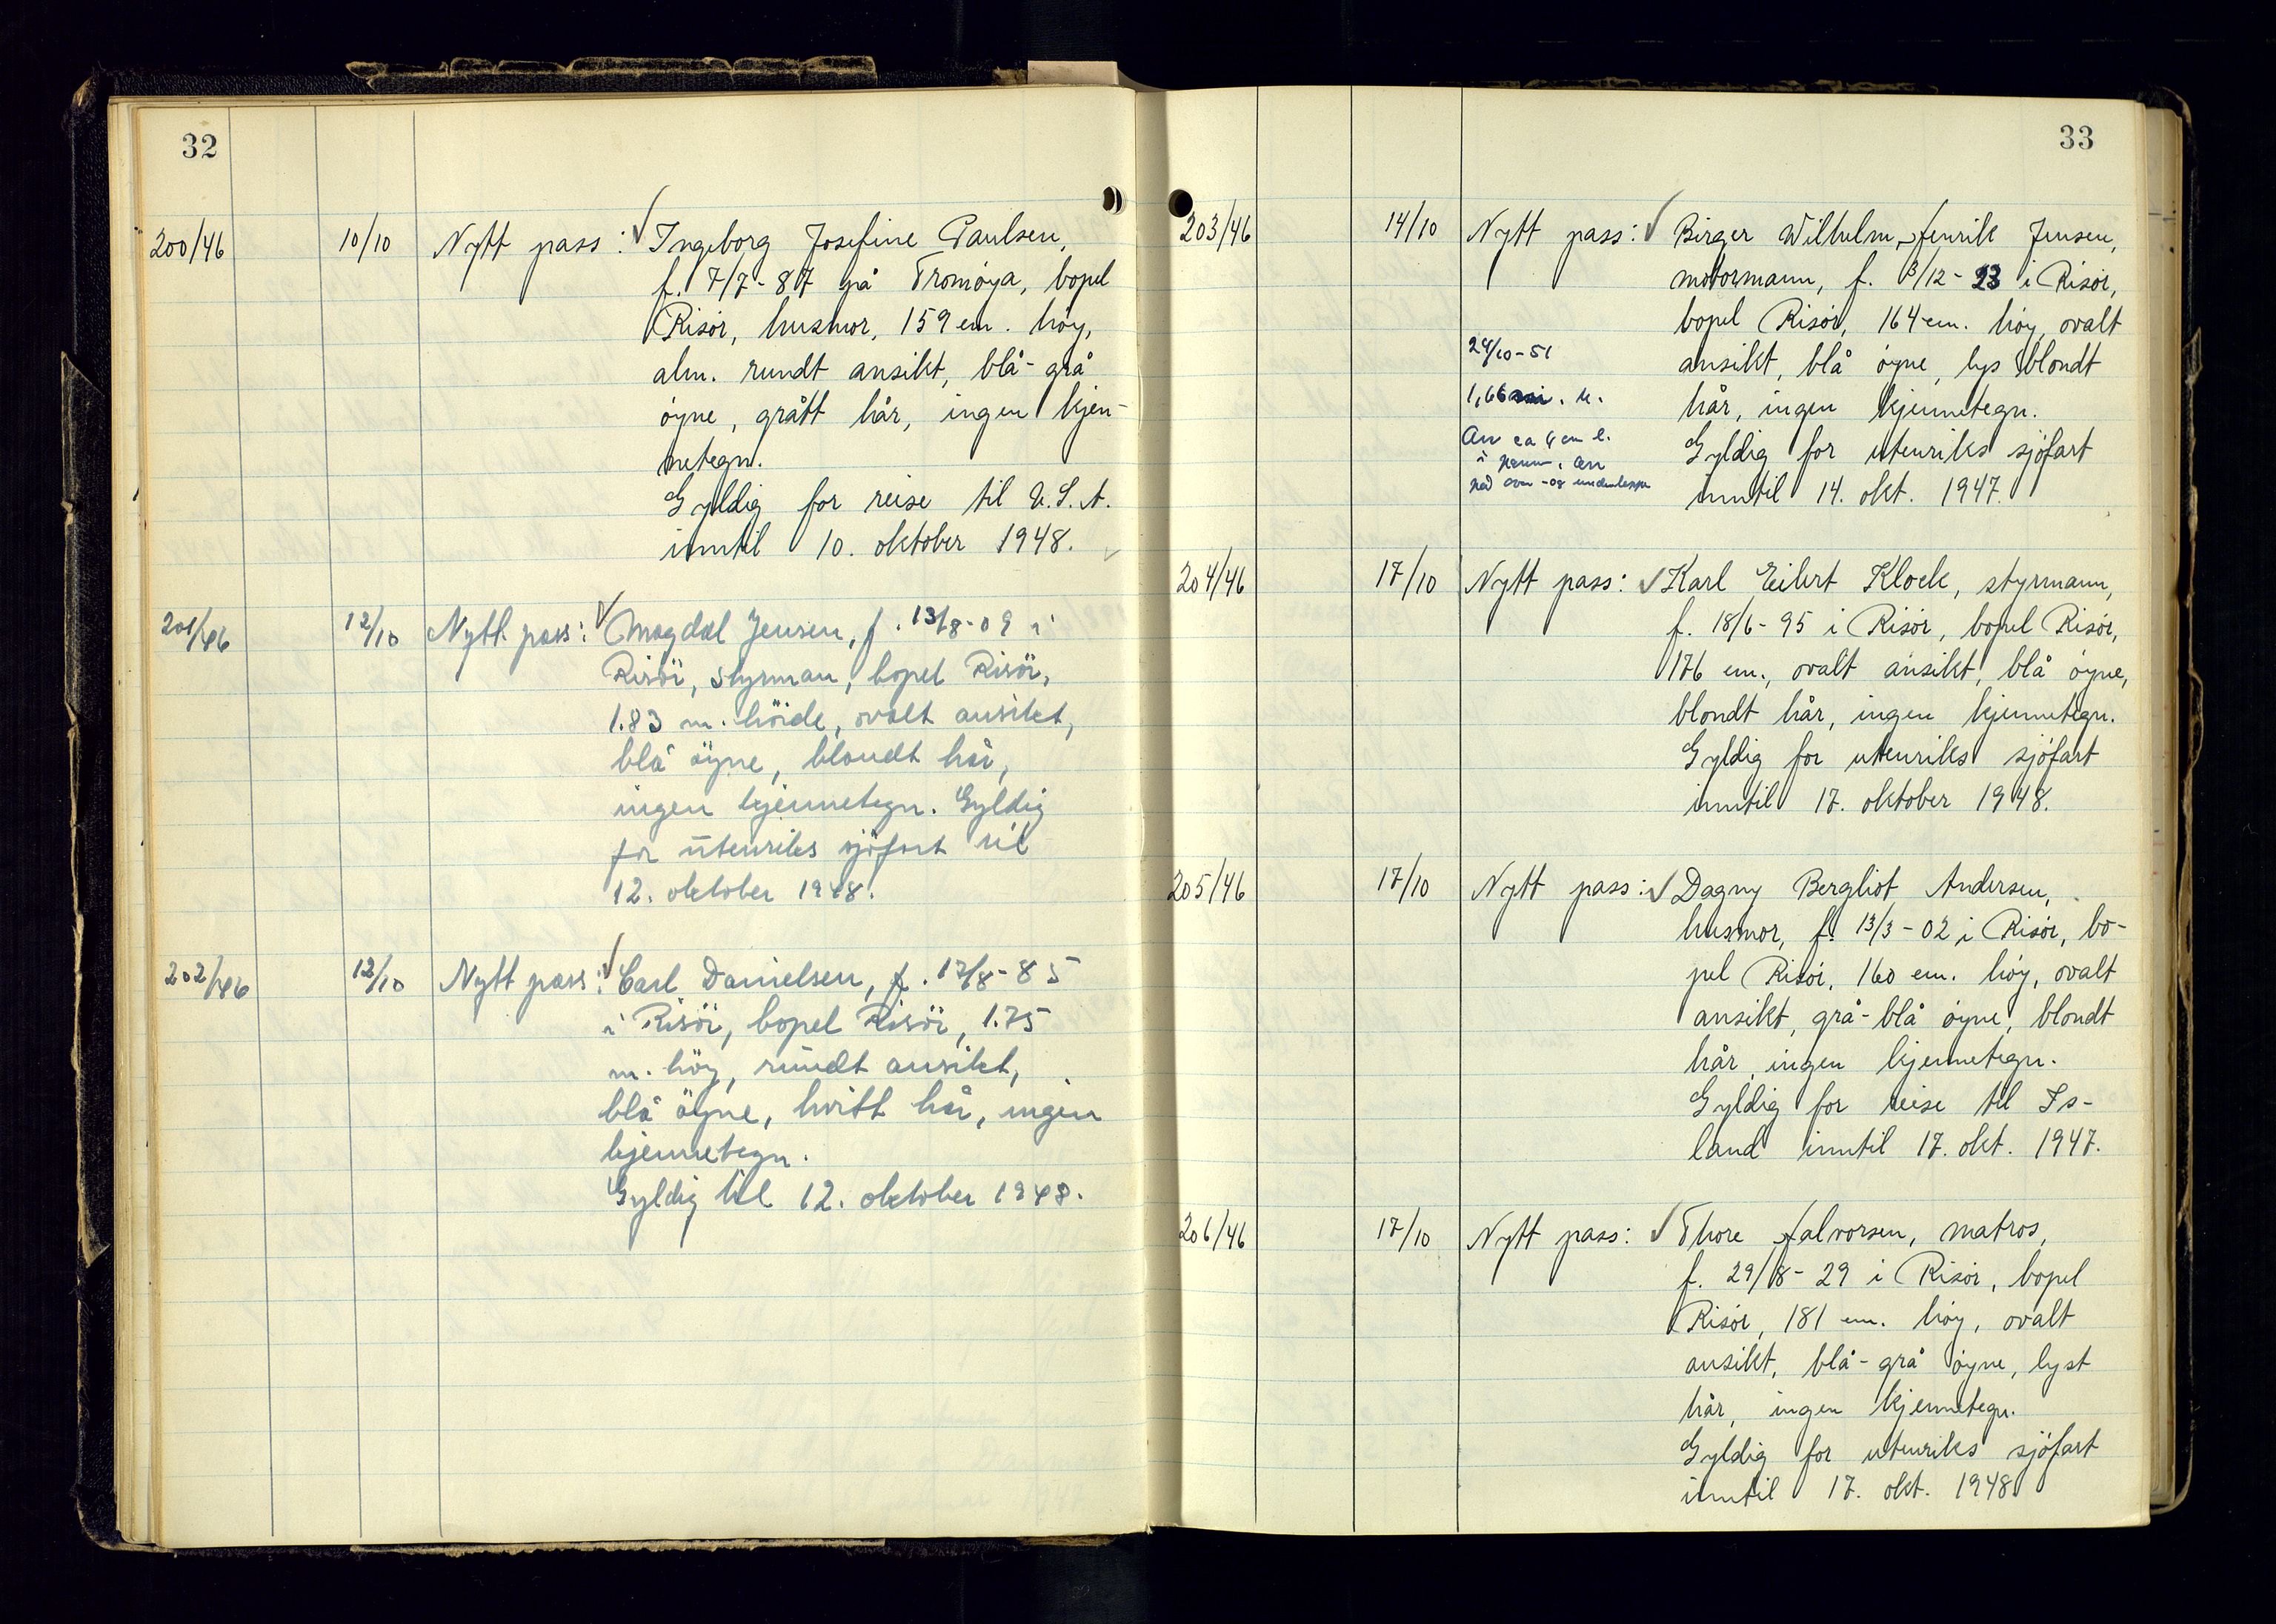 32
200/46 10/10 Nytt pass: Ingeborg Josefine Paulsen,
f. 7/7-87 på Tromøya, bopel
Risør, husmor, 159 cm. høy,
alm. rundt ansikt, blå-grå
øyne, grått hår, ingen kjen-
netegn.
Gyldig for reise til U.S.A.
inntil 10. oktober 1948.
201/46 12/10 Nytt pass: Magdal Jensen, f. 13/8-09 i
Risör, styrman, bopel Risör,
1.83 m. höide, ovalt ansikt,
blå öyne, blondt hår,
ingen kjennetegn. Gyldig
for utenriks sjöfart til
12. oktober 1948.
202/46 12/10 Nytt pass: Carl Danielsen, f. 17/8-85
i Risör, bopel Risör, 1.75
m. höy, rundt ansikt,
blå öyne, hvitt hår, ingen
kjennetegn.
Gyldig til 12. oktober 1948.
33
203/46 14/10 Nytt pass: Birger Wilhelm Henrik Jensen,
motormann, f. 3/12-23 i Risør,
bopel Risør, 164 cm. høy, ovalt
ansikt, blå øyne, lys blondt
hår, ingen kjennetegn.
Gyldig for utenriks sjøfart
inntil 14. okt. 1947.
24/10-51
1,66 m. h.
Arr ca 4 cm l.
i pannen, arr
på over- og underleppe
204/46 17/10 Nytt pass: Karl Eilert Klock, styrmann,
f. 18/6-95 i Risør, bopel Risør,
176 cm., ovalt ansikt, blå øyne,
blondt hår, ingen kjennetegn.
Gyldig for utenriks sjøfart
inntil 17. oktober 1948.
205/46 17/10 Nytt pass: Dagny Bergliot Andersen,
husmor, f. 13/3-02 i Risør, bo-
pel Risør, 160 cm. høy, ovalt
ansikt, grå-blå øyne, blondt
hår, ingen kjennetegn.
Gyldig for reise til Is-
land inntil 17. okt. 1947.
206/46 17/10 Nytt pass: Thore Halvorsen, matros,
f. 29/8-29 i Risør, bopel
Risør, 181 cm. høy, ovalt
ansikt, blå-grå øyne, lyst
hår, ingen kjennetegn.
Gyldig for utenriks sjøfart
inntil 17. okt. 1948